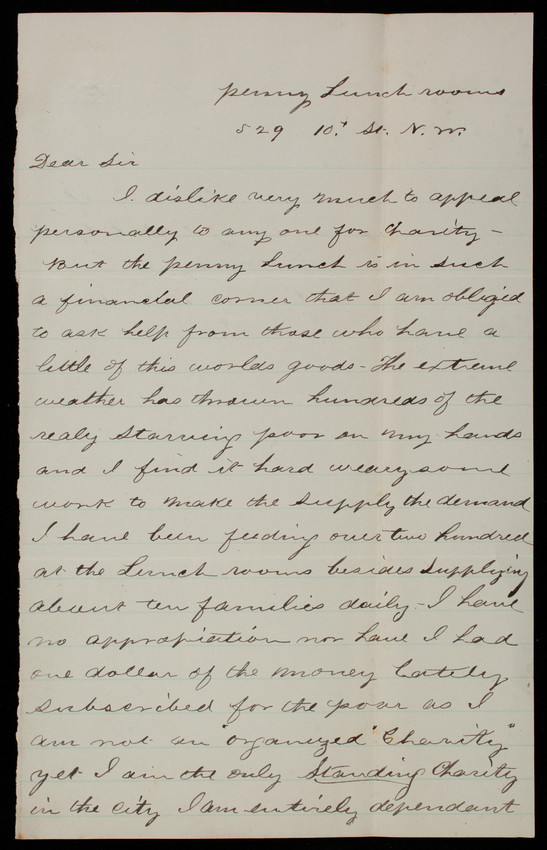 penny Lunch rooms
529 10th St. N. W.
Dear Sir
I dislike very much to appeal
personally to any one for Charity -
But the penny Lunch is in such
a financial corner that I am obliged
to ask help from those who have a
little of this worlds goods - The extreme
weather has thrown hundreds of the
realy starving poor on my hands
and I find it hard wearysome
work to make the supply the demand
I have been feeding over two hundred
at the Lunch rooms besides supplying
about ten families daily - I have
no appropiation nor have I had
one dollar of the money lately
subscribed for the poor as I
am not an "organized "Charity"
yet I am the only Standing Charity
in the city I am entirely dependant